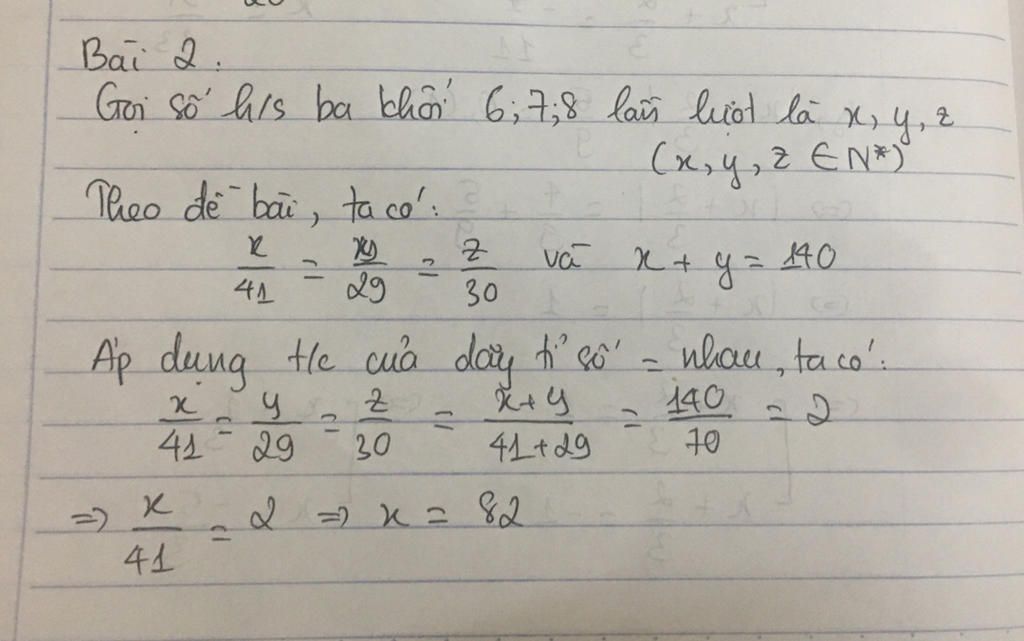 Bài 2.
Gọi số h/s ba khối 6; 7; 8 lần lượt là x, y, z
(x, y, z ∈ N*)
Theo đề bài, ta có:
x/41 = y/29 = z/30 và x + y = 140
Áp dụng t/c của dãy tỉ số = nhau, ta có:
x/41 = y/29 = z/30 = x+y/41+29 = 140/70 = 2
=> x/41 = 2 => x = 82